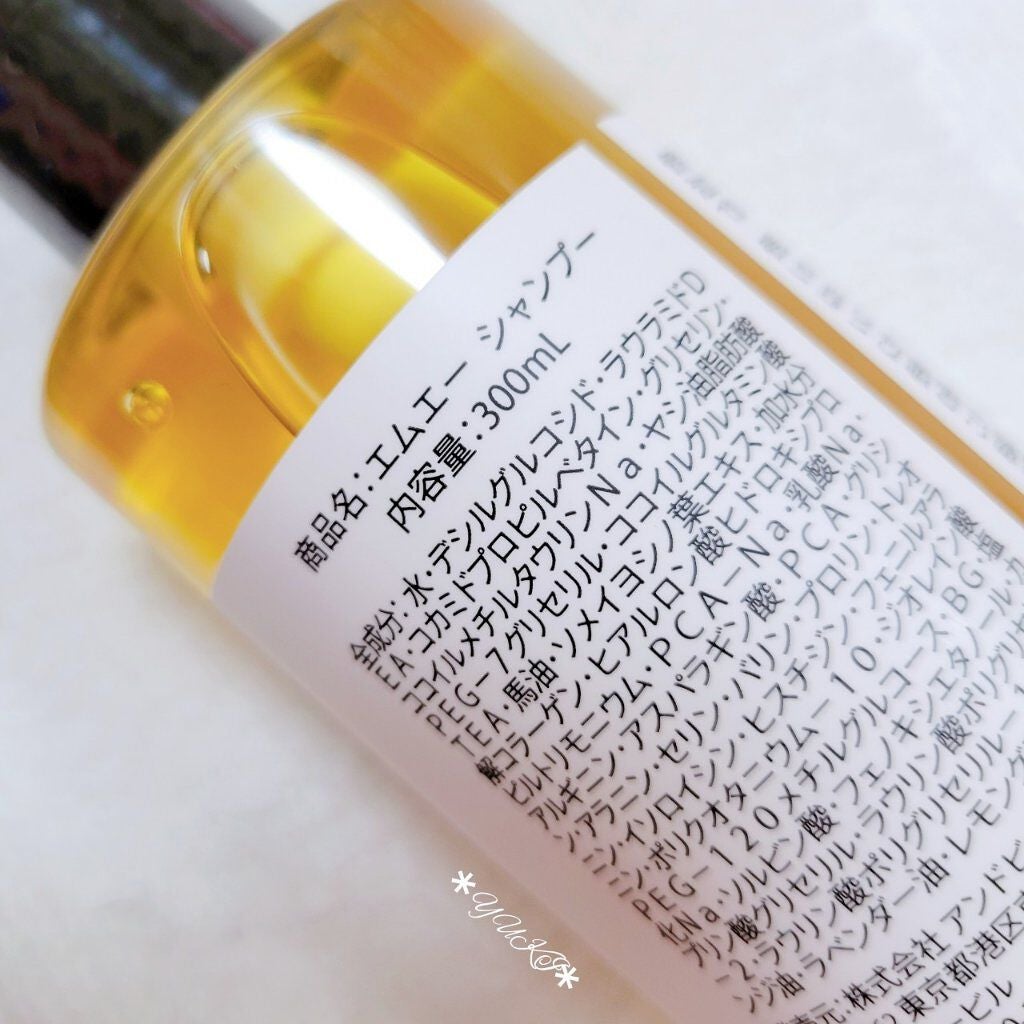 商品名：エムエー シャンプー
内容量：300mL
全成分：水・デシルグルコシド・ラウラミドD
EA・コカミドプロピルベタイン・グリセリン・
ココイルメチルタウリンNa・ヤシ油脂肪酸
PEG−7グリセリル・ココイルグルタミン酸
TEA・馬油・ソメイヨシノ葉エキス・加水分
解コラーゲン・ヒアルロン酸ヒドロキシプロ
ピルトリモニウム・PCA−Na・乳酸Na・
アルギニン・アスパラギン酸・PCA・グリシ
ン・アラニン・セリン・バリン・プロリン・トレオ
ニン・イソロイシン・ヒスチジン・フェニルアラ
ニン・ポリクオタニウム−10・ジオレイン酸
PEG−120メチルグルコース・BG・
化Na・ソルビン酸・フェノキシエタノール・カ
プリン酸グリセリル・ラウリン酸ポリグリセ
−2・ラウリン酸ポリグリセリル−1
ンジ油・ラベンダー油・レモング
元：株式会社 アンドビ
東京都港区
ービル
*YUKI*